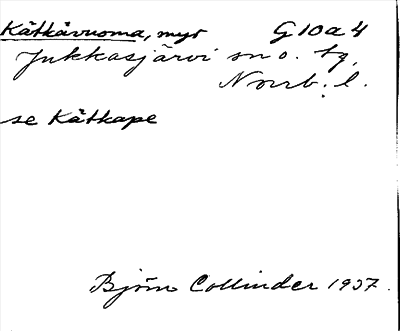 Kätkävuoma, myr G10a4
Jukkasjärvi sn o. tg,
Norrb. l.
se Kätkape
Björn Collinder 1937.